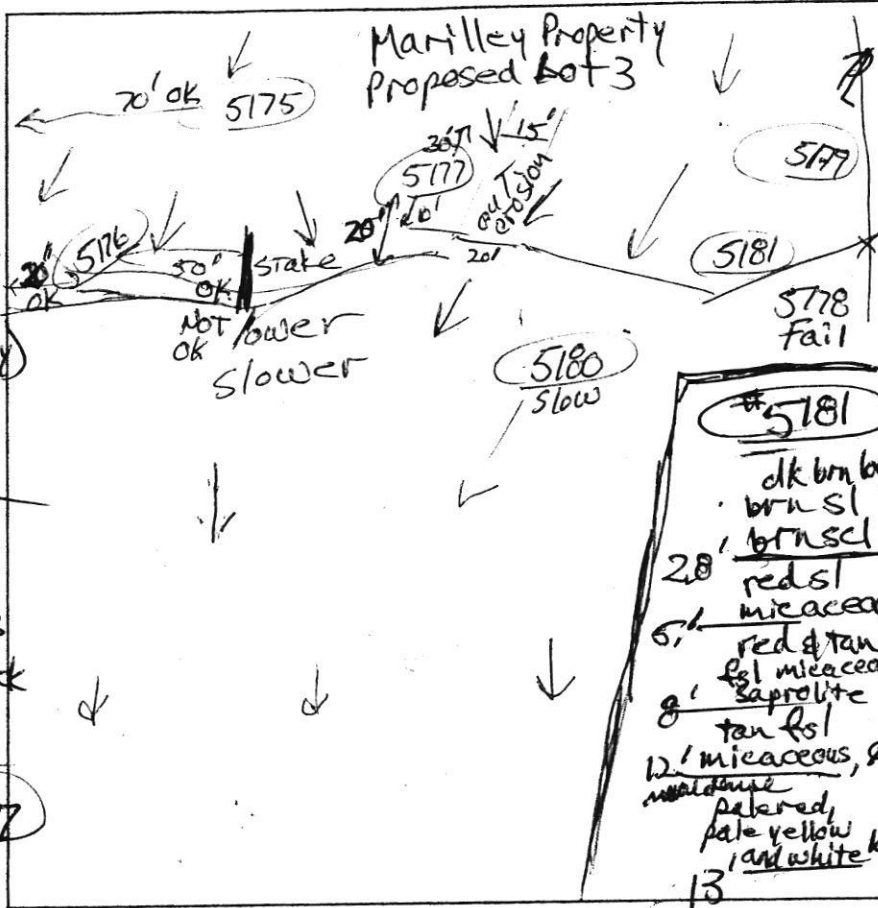 Marilley Property
Proposed Lot 3
70' OK
5175
30'
15'
5177
20'
erosion
20'
5179
5176
50'
OK
Stake
OK
NOT
OK
lower
slower
5181
5178
Fail
5180
Slow
#5181
dk brn
brn sl
brn scl
2.8'
red sl
micaceous
red & tan
fsl micaceous
8' saprolite
tan fsl
12' micaceous,
pale red,
pale yellow
and white
13'